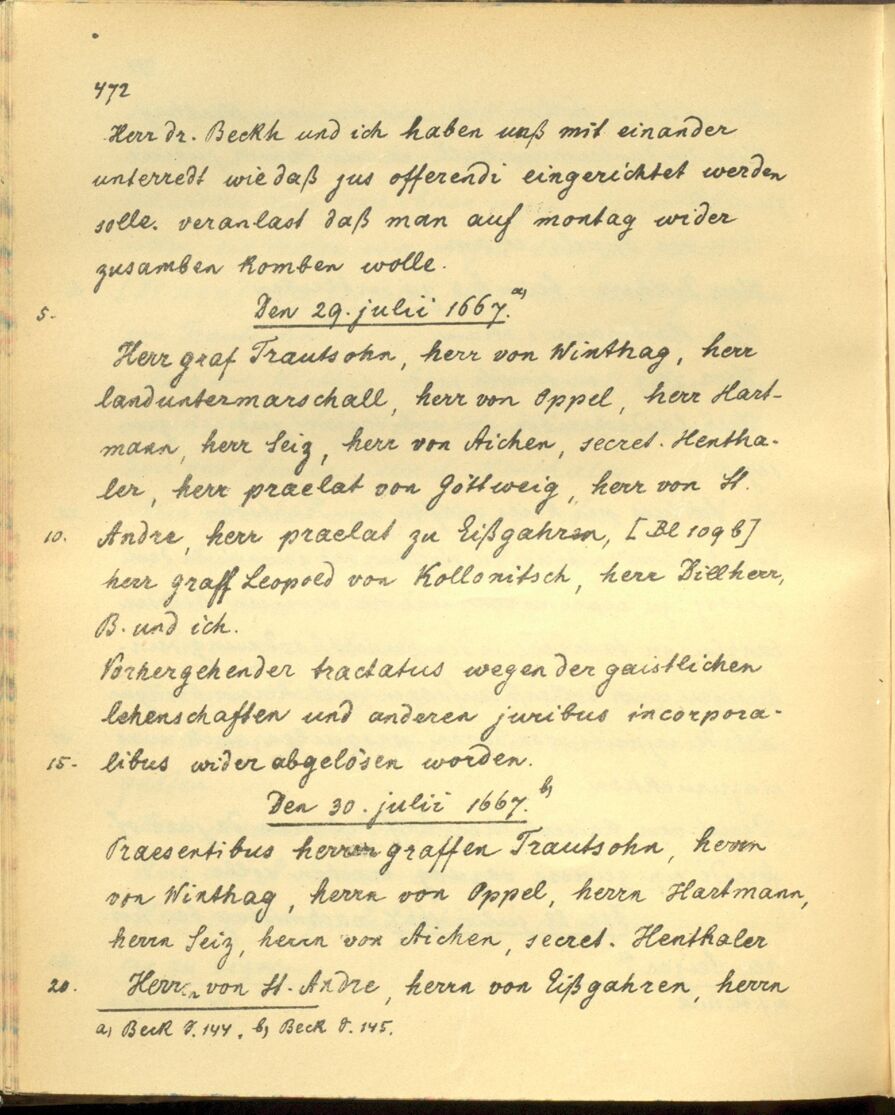 472
Herr dr. Beckh und ich haben unß mit einander
unterredt wie daß jus offerendi eingerichtet werden
solle. veranlast daß man auf montag wider
zusamben komben wolle.
5. Den 29. julii 1667. a)
Herr graf Trautsohn, herr von Winthag, herr
landuntermarschall, herr von Oppel, herr Hart-
mann, herr Seiz, herr von Aichen, secret. Hentha-
ler, herr praelat von Göttweig, herr von St.
10. Andre, herr praelat zu Eißgahren, [Bl 109 b]
herr graff Leopold von Kollonitsch, herr Dillherr,
B. und ich.
Vorhergehender tractatus wegen der gaistlichen
lehenschaften und anderen juribus incorpora-
15. libus wider abgelösen worden.
Den 30. julii 1667. b)
Praesentibus herrn graffen Trautsohn, herrn
von Winthag, herrn von Oppel, herrn Hartmann,
herrn Seiz, herrn von Aichen, secret. Henthaler
20. Herrn von St. Andre, herrn von Eißgahren, herrn
a) Beck S. 144. b) Beck S. 145.